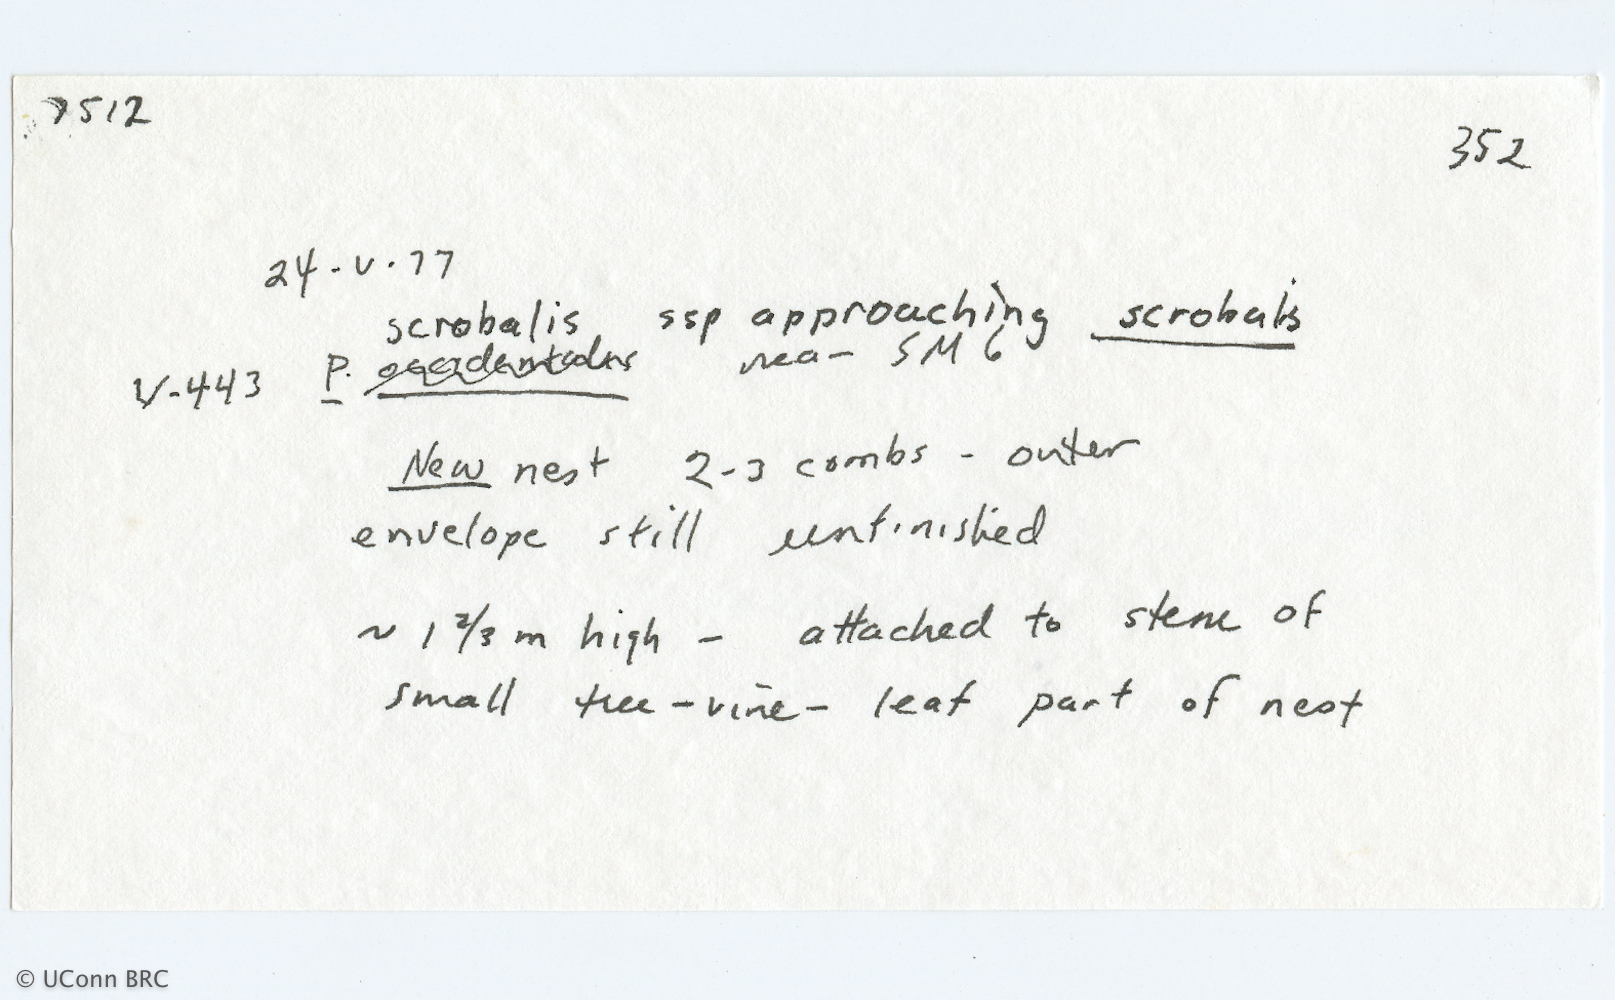 7512
352
24-V-77
scrobalis ssp approaching scrobalis
V-443 P. occidentalis near SM 6
New nest 2-3 combs - outer
envelope still unfinished
~ 1 2/3 m high - attached to stem of
small tree-vine- leaf part of nest
© UConn BRC